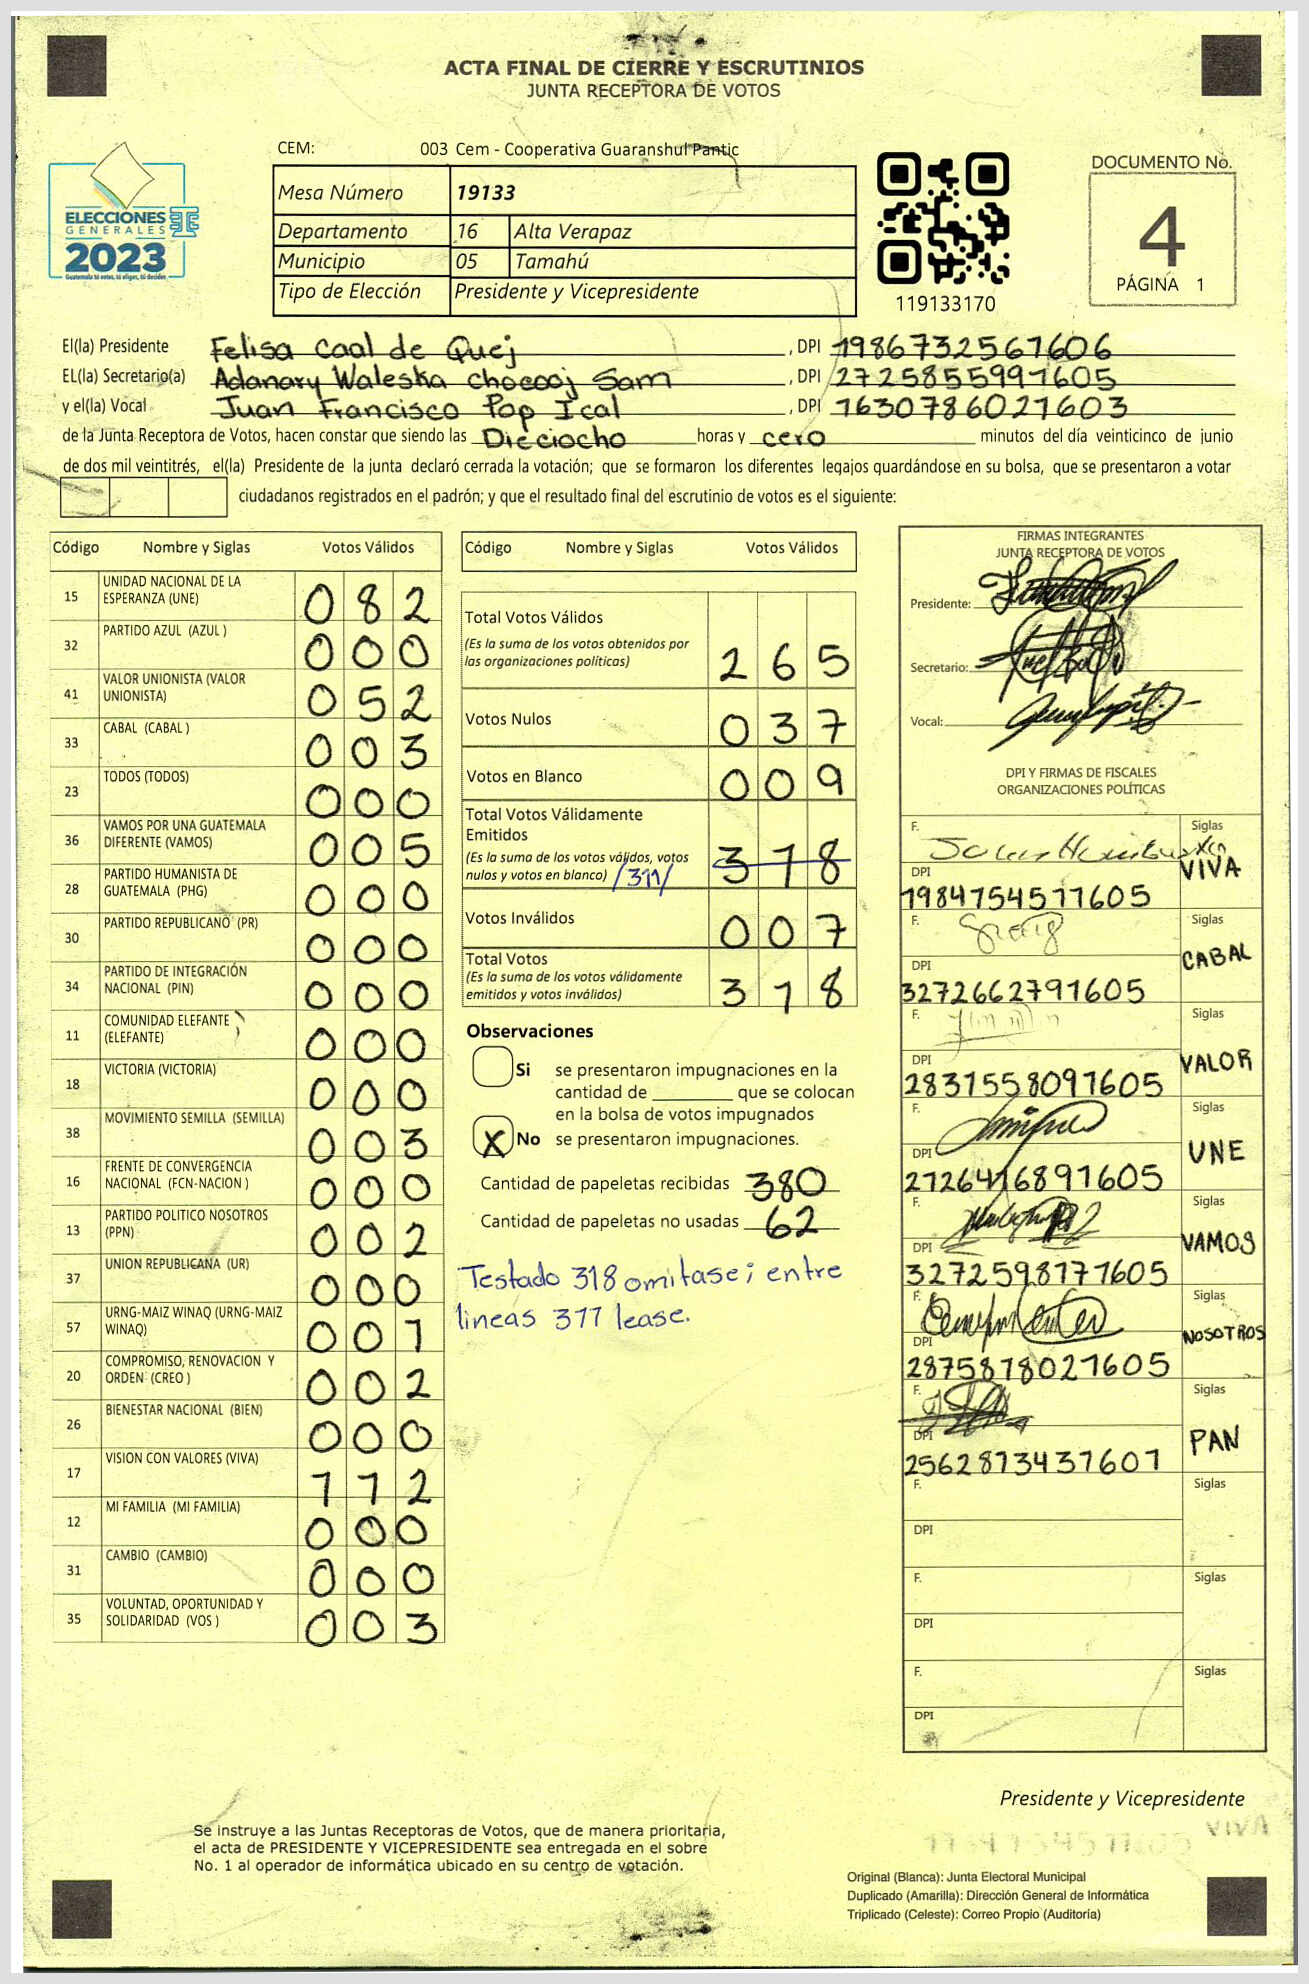 ACTA FINAL DE CIERRE Y ESCRUTINIOS
JUNTA RECEPTORA DE VOTOS
CEM: 003 Cem - Cooperativa Guaranshul Pantic
ELECCIONES
GENERALES
2023
Guatemala tú votas, tú eliges, tú decides
Mesa Número 19133
Departamento 16 Alta Verapaz
Municipio 05 Tamahú
Tipo de Elección Presidente y Vicepresidente
119133170
DOCUMENTO No.
4
PÁGINA 1
El(la) Presidente Felisa Caal de Quej , DPI 1986732561606
EL(la) Secretario(a) Adanary Waleska Chocooj Sam , DPI 2725855991605
y el(la) Vocal Juan Francisco Pop Ical , DPI 1630786021603
de la Junta Receptora de Votos, hacen constar que siendo las Dieciocho horas y cero minutos del día veinticinco de junio
de dos mil veintitrés, el(la) Presidente de la junta declaró cerrada la votación; que se formaron los diferentes legajos guardándose en su bolsa, que se presentaron a votar
ciudadanos registrados en el padrón; y que el resultado final del escrutinio de votos es el siguiente:
Código Nombre y Siglas Votos Válidos
15 UNIDAD NACIONAL DE LA ESPERANZA (UNE) 082
32 PARTIDO AZUL (AZUL ) 000
41 VALOR UNIONISTA (VALOR UNIONISTA) 052
33 CABAL (CABAL ) 003
23 TODOS (TODOS) 000
36 VAMOS POR UNA GUATEMALA DIFERENTE (VAMOS) 005
28 PARTIDO HUMANISTA DE GUATEMALA (PHG) 000
30 PARTIDO REPUBLICANO (PR) 000
34 PARTIDO DE INTEGRACIÓN NACIONAL (PIN) 000
11 COMUNIDAD ELEFANTE (ELEFANTE) 000
18 VICTORIA (VICTORIA) 000
38 MOVIMIENTO SEMILLA (SEMILLA) 003
16 FRENTE DE CONVERGENCIA NACIONAL (FCN-NACION ) 000
13 PARTIDO POLITICO NOSOTROS (PPN) 002
37 UNION REPUBLICANA (UR) 000
57 URNG-MAIZ WINAQ (URNG-MAIZ WINAQ) 001
20 COMPROMISO, RENOVACION Y ORDEN (CREO ) 002
26 BIENESTAR NACIONAL (BIEN) 000
17 VISION CON VALORES (VIVA) 112
12 MI FAMILIA (MI FAMILIA) 000
31 CAMBIO (CAMBIO) 000
35 VOLUNTAD, OPORTUNIDAD Y SOLIDARIDAD (VOS ) 003
Código Nombre y Siglas Votos Válidos
Total Votos Válidos
(Es la suma de los votos obtenidos por
las organizaciones políticas) 265
Votos Nulos 037
Votos en Blanco 009
Total Votos Válidamente
Emitidos
(Es la suma de los votos válidos, votos
nulos y votos en blanco) /311/ 318
Votos Inválidos 007
Total Votos
(Es la suma de los votos válidamente
emitidos y votos inválidos) 318
Observaciones
Si se presentaron impugnaciones en la
cantidad de ________ que se colocan
en la bolsa de votos impugnados
X No se presentaron impugnaciones.
Cantidad de papeletas recibidas 380
Cantidad de papeletas no usadas 62
Testado 318 omitase; entre
lineas 311 lease.
FIRMAS INTEGRANTES
JUNTA RECEPTORA DE VOTOS
Presidente:
Secretario:
Vocal:
DPI Y FIRMAS DE FISCALES
ORGANIZACIONES POLÍTICAS
F. Siglas VIVA
DPI 1984754511605
F. Siglas CABAL
DPI 3272662791605
F. Siglas VALOR
DPI 2831558091605
F. Siglas UNE
DPI 2726416891605
F. Siglas VAMOS
DPI 3272598171605
F. Siglas NOSOTROS
DPI 2875818021605
F. Siglas PAN
DPI 2562813431601
F. Siglas
DPI
F. Siglas
DPI
F. Siglas
DPI
Presidente y Vicepresidente
Se instruye a las Juntas Receptoras de Votos, que de manera prioritaria,
el acta de PRESIDENTE Y VICEPRESIDENTE sea entregada en el sobre
No. 1 al operador de informática ubicado en su centro de votación.
Original (Blanca): Junta Electoral Municipal
Duplicado (Amarilla): Dirección General de Informática
Triplicado (Celeste): Correo Propio (Auditoría)